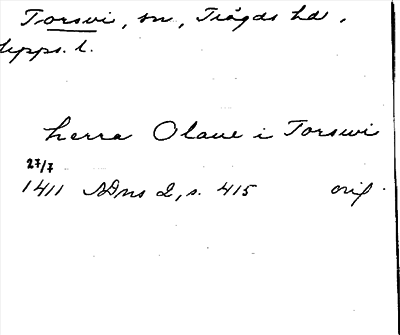 Torsvi, sn, Trögds hd,
Upps. l.
herra Olaue i Torswi
27/7
1411 SDns 2, s. 415 orig.